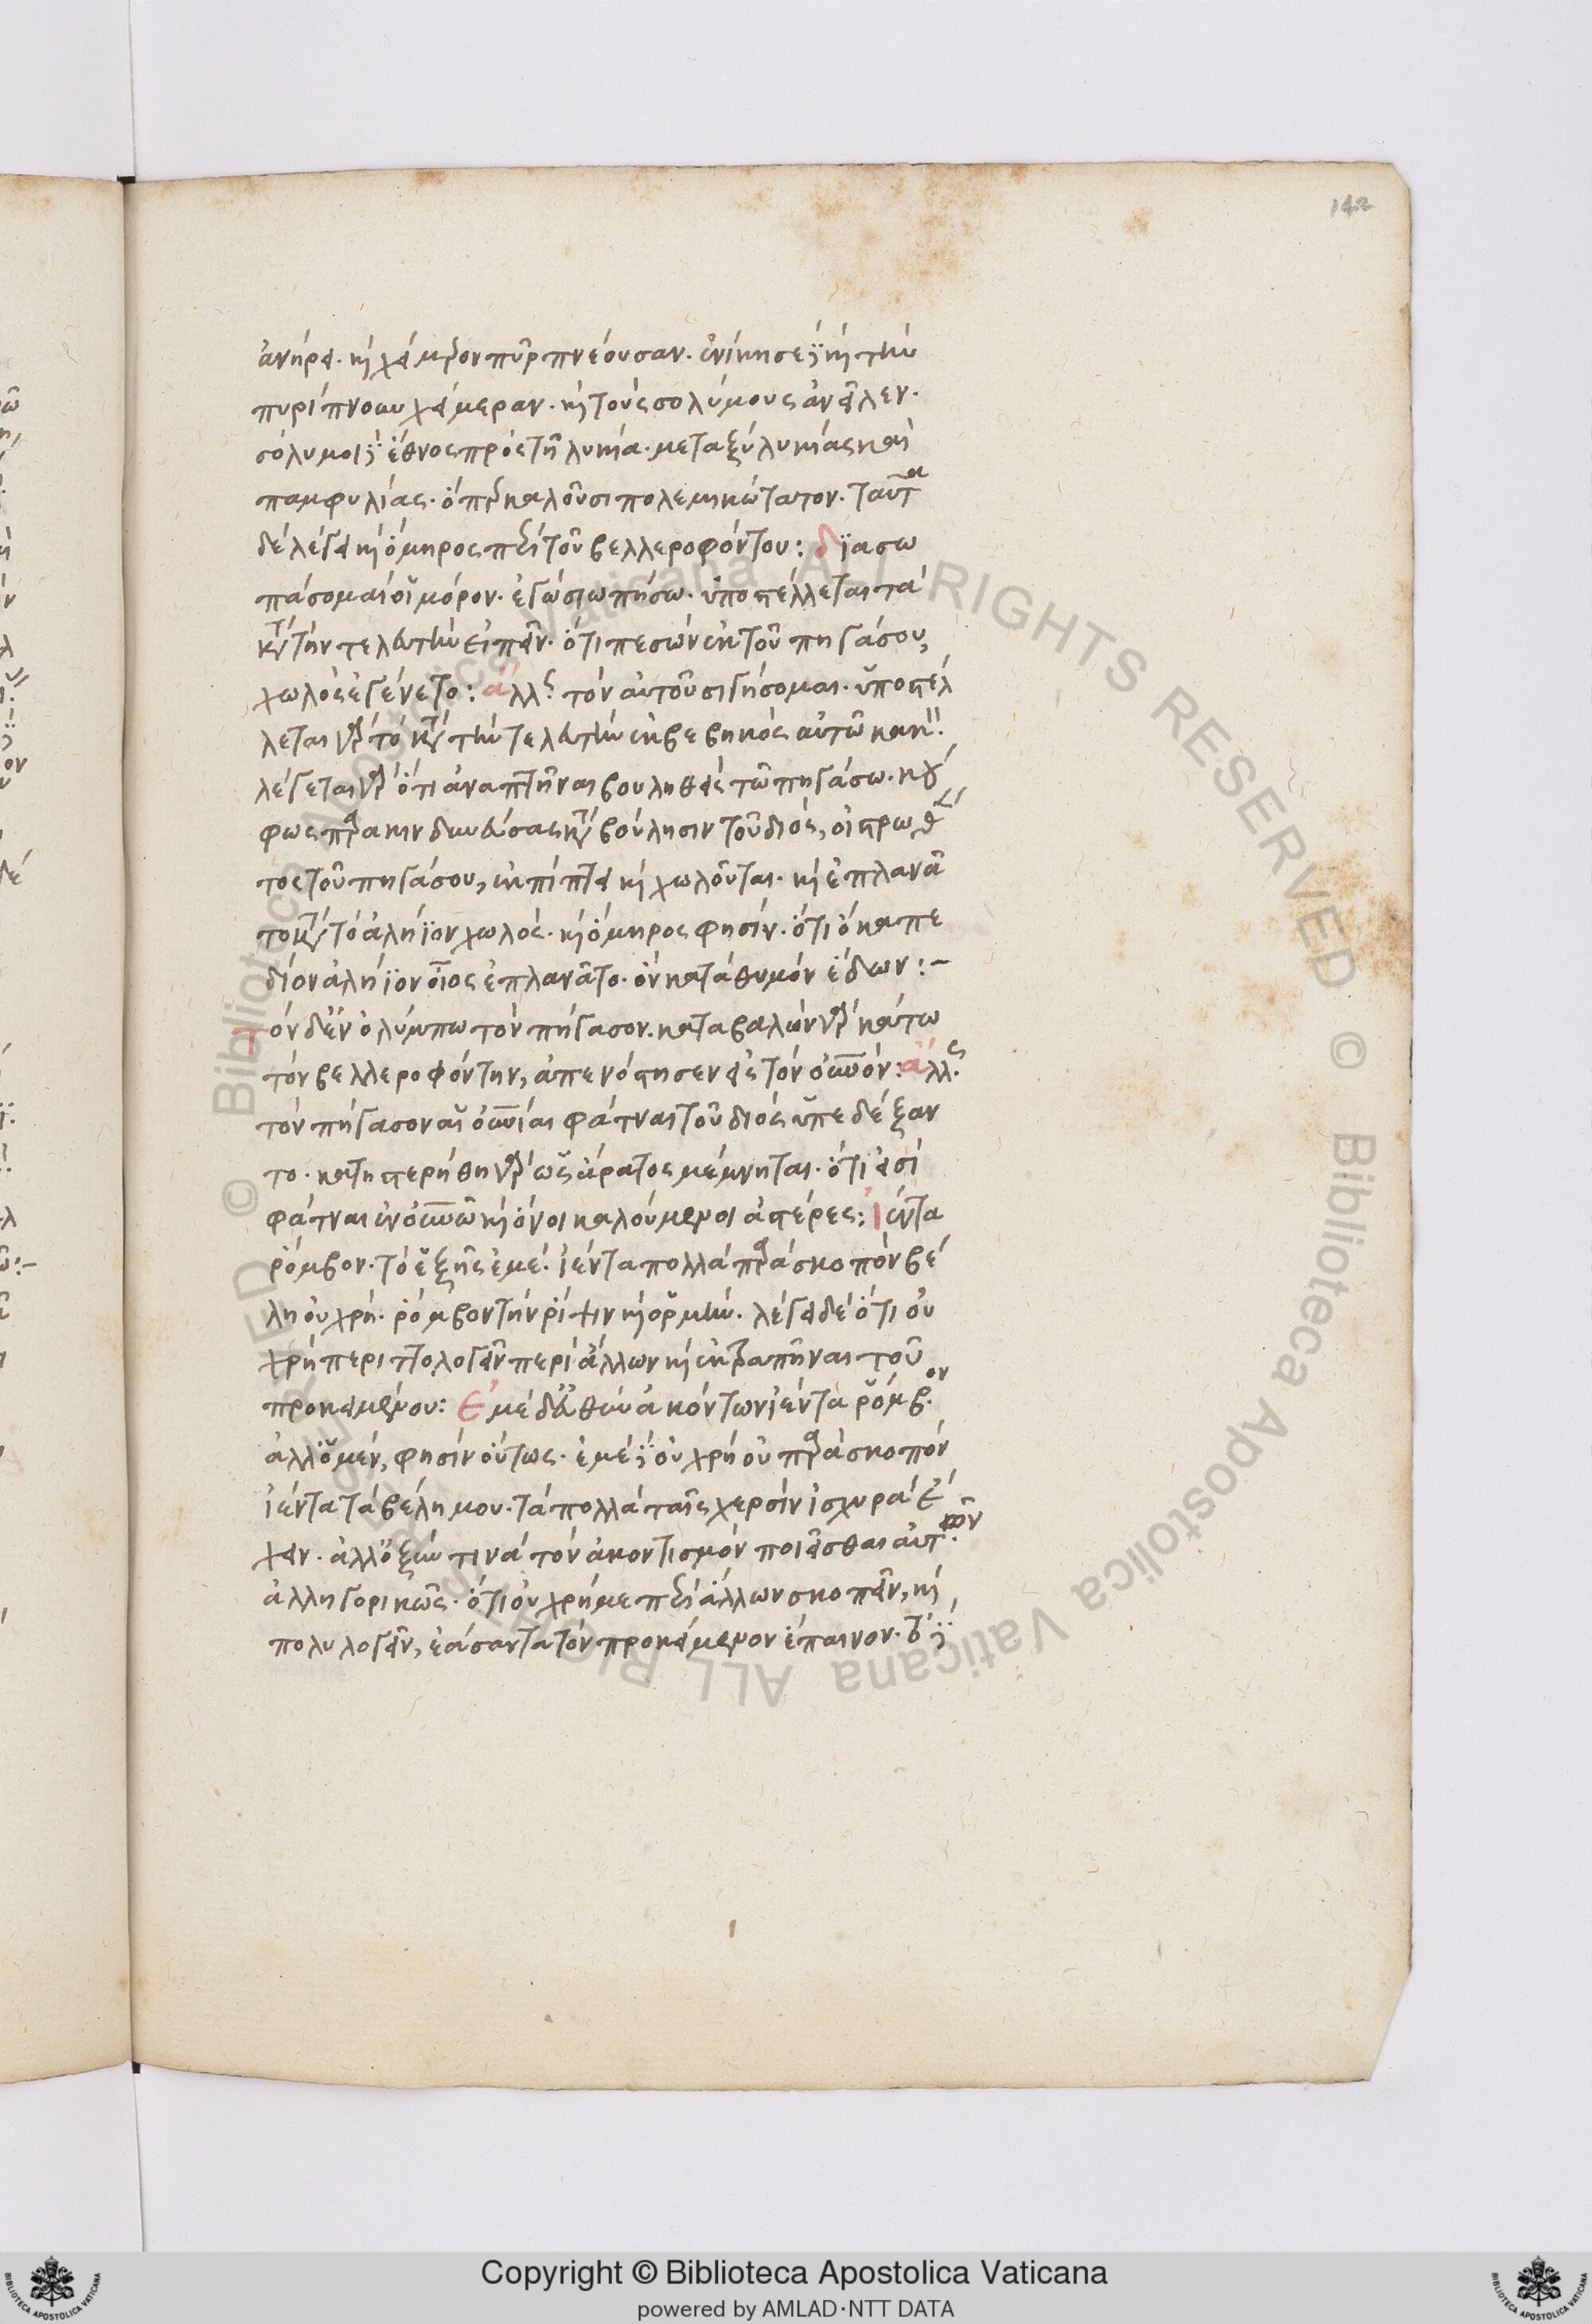 142
ἀνήρει. καὶ χίμαιραν πῦρ πνέουσαν. ἐνίκησε δὲ καὶ τὴν
πυρίπνοων χείμεραν. καὶ τοὺς σολύμους ἀνεῖλεν.
σόλυμοι δὲ ἔθνος πρὸς τῆ λυκία. μεταξὺ λυκίας καὶ
παμφυλίας. ὅπερ καλοῦσι πολεμικώτατον. ταῦτα
δὲ λέγει καὶ ὅμηρος περὶ τοῦ βελλεροφόντου: διασω
πάσομαί οἱ μόρον. ἐγὼ σιωπήσω. ὑποστέλλεται τὰ
κατὰ τὴν τελευτὴν εἰπεῖν. ὅτι πεσὼν ἐκ τοῦ πηγάσου,
χωλὸς ἐγένετο: ἄλλως. τὸν αὐτοῦ σιγήσομαι. ὑποστέλ
λεται γὰρ τὸ κατὰ τὴν τελευτὴν ἐκβεβηκὸς αὐτῶ κακόν.
λέγεται γὰρ ὅτι ἀναπτῆναι βουληθεὶς τῶ πηγάσω. κού
φως παρακινδυνεύσας κατὰ βούλησιν τοῦ διός, οἰστρωθέν
τος τοῦ πηγάσου, ἐκπίπτει καὶ χωλοῦται. καὶ ἐπλανᾶ
το κατὰ τὸ ἀλήϊον χωλός. καὶ ὅμηρος φησίν. ὅτι ὁ καπε
δίον ἀλήϊον οἶος ἐπλανᾶτο. ὃν κατὰ θυμὸν ἔδων:-
Τὸν δ' ἐν ὀλύμπω τὸν πήγασον. καταβαλὼν γὰρ κάτω
τὸν βελλεροφόντην, ἀπενόστησεν εἰς τὸν οὐρανόν: ἄλλως.
τὸν πήγασον αἱ οὐράνιαι φάτναι τοῦ διὸς ὑπεδέξαν
το. κατηστερήθη γὰρ ὡς ἄρατος μέμνηται. ὅτι εἰσὶ
φάτναι ἐν οὐρανῶ καὶ ὄνοι καλούμενοι ἀστέρες: ἱέντα
ῥόμβον. τὸ ἑξῆς ἐμέ. ἱέντα πολλὰ παρὰ σκοπὸν βέ
λη οὐ χρή. ῥόμβον τὴν ῥίψιν καὶ ὁρμήν. λέγει δὲ ὅτι οὐ
χρὴ περιττολογεῖν περὶ ἄλλων καὶ ἐκτραπῆναι τοῦ
προκειμένου: Ἐμὲ δ' εὐθὺν ἀκόντων ἱέντα ῥόμβον.
ἀλλ' ὁ μέν, φησὶν οὕτως. ἐμὲ δὲ οὐ χρὴ οὐ παρὰ σκοπὸν
ἱέντα τὰ βέλη μου. τὰ πολλὰ ταῖς χερσὶν ἰσχυρὰ ἔ
χειν. ἀλλ' ὀξύν τινα τὸν ἀκοντισμὸν ποιεῖσθαι αὐτῶν.
ἀλληγορικῶς. ὅτι οὐ χρή με περὶ ἄλλων σκοπεῖν, καὶ
πολυλογεῖν, ἐάσαντα τὸν προκείμενον ἔπαινον. τὸ δὲ